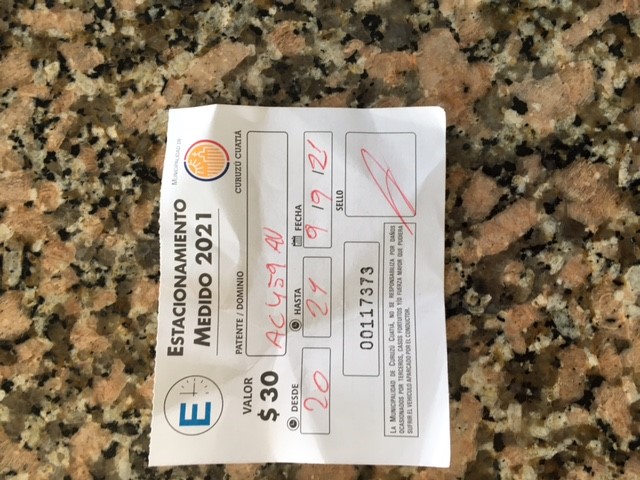 E
ESTACIONAMIENTO
MEDIDO 2021
MUNICIPALIDAD DE
CURUZÚ CUATIÁ
VALOR
$ 30
PATENTE / DOMINIO
AC 459 AV
DESDE
20
HASTA
21
FECHA
9/9/21
00117373
SELLO
LA MUNICIPALIDAD DE CURUZÚ CUATIÁ, NO SE RESPONSABILIZA POR DAÑOS
OCASIONADOS POR TERCEROS, CASOS FORTUITOS Y/O FUERZA MAYOR QUE PUDIERA
SUFRIR EL VEHICULO APARCADO POR EL CONDUCTOR.